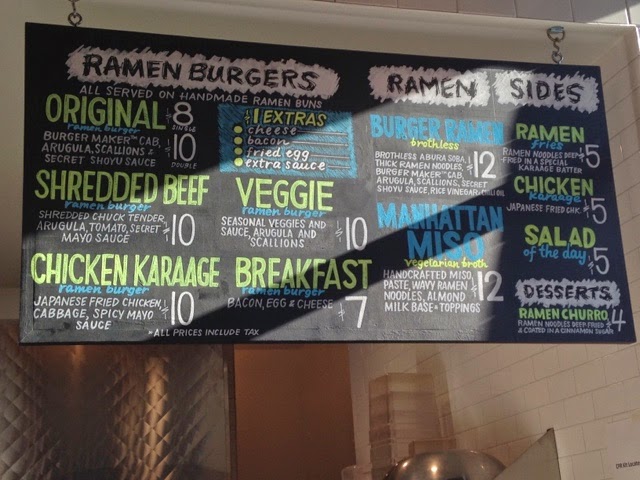 RAMEN BURGERS
ALL SERVED ON HANDMADE RAMEN BUNS
ORIGINAL $8
ramen burger SINGLE
BURGER MAKER™ CAB,
ARUGULA, SCALLIONS &
SECRET SHOYU SAUCE
$10
DOUBLE
$1 EXTRAS
cheese
bacon
fried egg
extra sauce
SHREDDED BEEF
ramen burger
SHREDDED CHUCK TENDER,
ARUGULA, TOMATO, SECRET
MAYO SAUCE
$10
VEGGIE
ramen burger
SEASONAL VEGGIES AND
SAUCE, ARUGULA AND
SCALLIONS
$10
CHICKEN KARAAGE
ramen burger
JAPANESE FRIED CHICKEN,
CABBAGE, SPICY MAYO
SAUCE
$10
BREAKFAST
ramen burger
BACON, EGG & CHEESE
$7
*ALL PRICES INCLUDE TAX
RAMEN
BURGER RAMEN
brothless
BROTHLESS ABURA SOBA,
THICK RAMEN NOODLES,
BURGER MAKER™ CAB,
ARUGULA, SCALLIONS, SECRET
SHOYU SAUCE, RICE VINEGAR, CHILI OIL
$12
MANHATTAN
MISO
vegetarian broth
HANDCRAFTED MISO
PASTE, WAVY RAMEN
NOODLES, ALMOND
MILK BASE + TOPPINGS
$12
SIDES
RAMEN
fries
RAMEN NOODLES DEEP
FRIED IN A SPECIAL
KARAAGE BATTER
$5
CHICKEN
karaage
JAPANESE FRIED CHK.
$5
SALAD
of the day
$5
DESSERTS
RAMEN CHURRO
RAMEN NOODLES DEEP FRIED
& COATED IN A CINNAMON SUGAR
$4